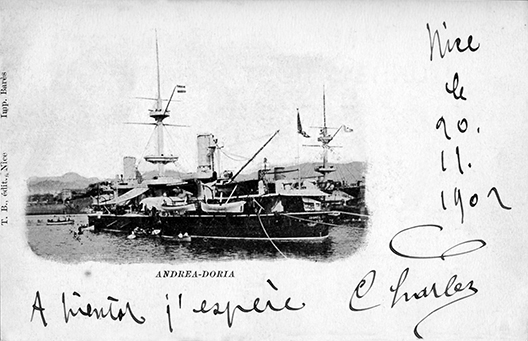 Nice
le
20.
11.
1902
T. B., édit., Nice Imp. Barès
ANDREA-DORIA
A bientot j'espère Charles